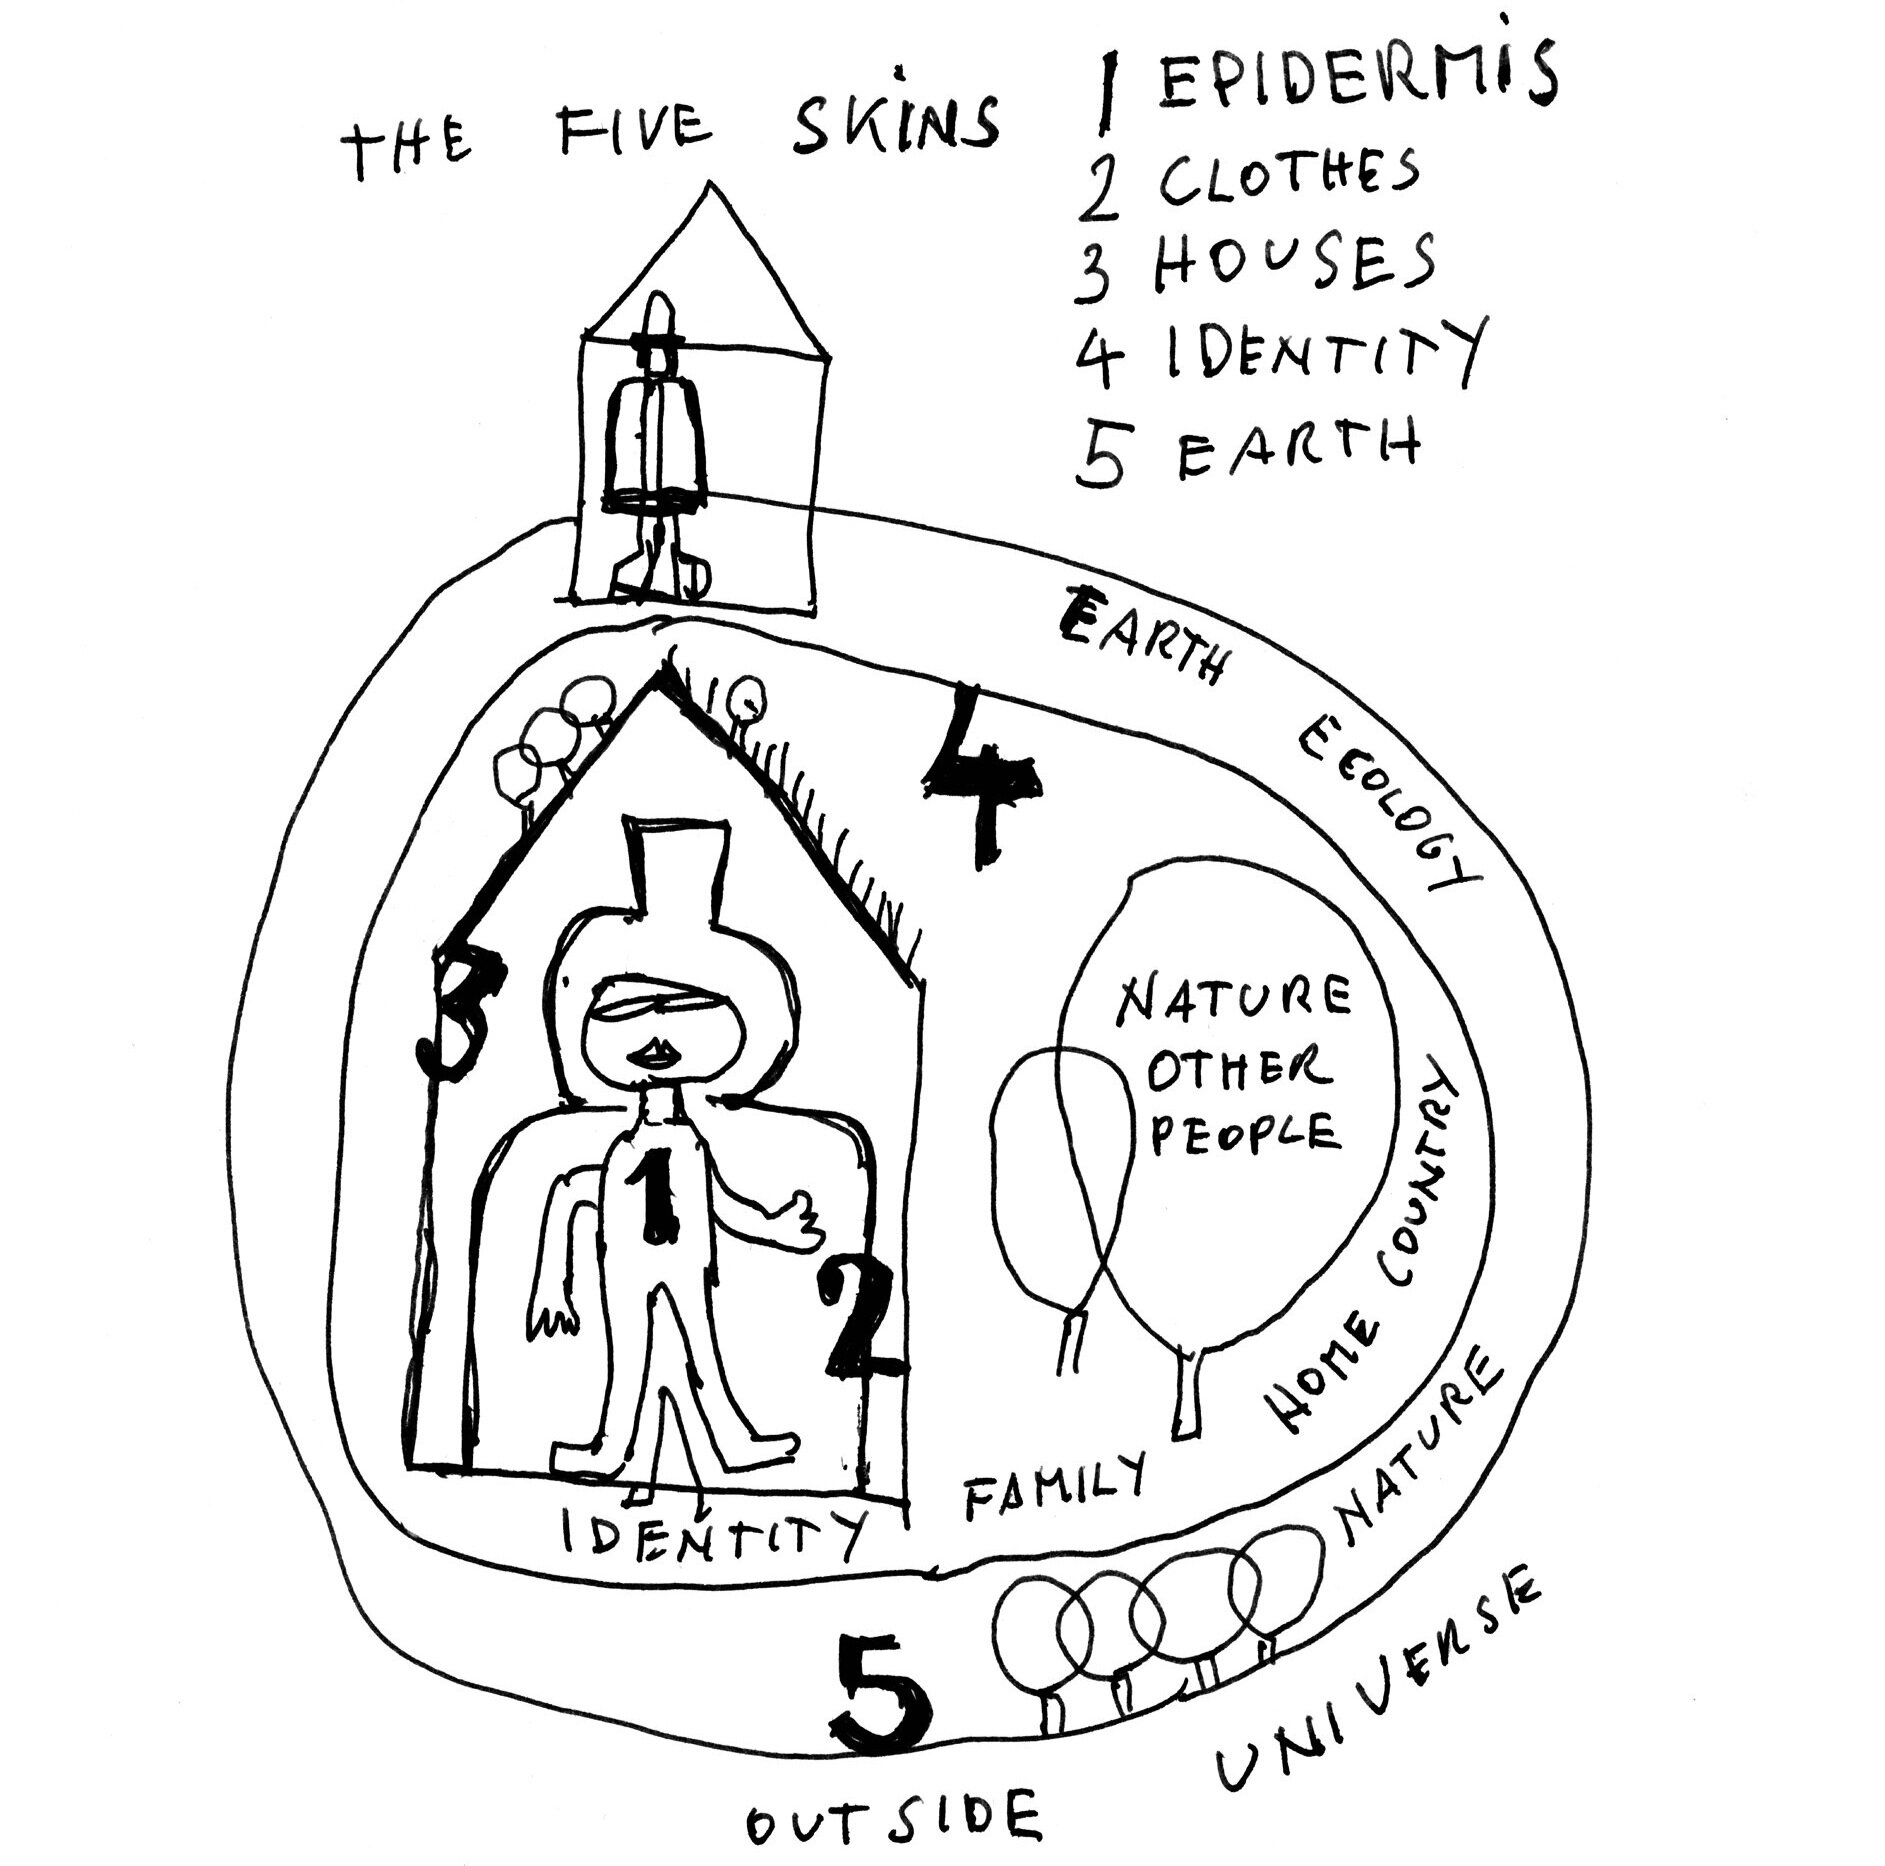 THE FIVE SKINS
1 EPIDERMIS
2 CLOTHES
3 HOUSES
4 IDENTITY
5 EARTH
EARTH
ECOLOGY
4
3
NATURE
OTHER
PEOPLE
1
2
HOME COUNTRY
FAMILY
IDENTITY
NATURE
5
UNIVERSE
OUTSIDE